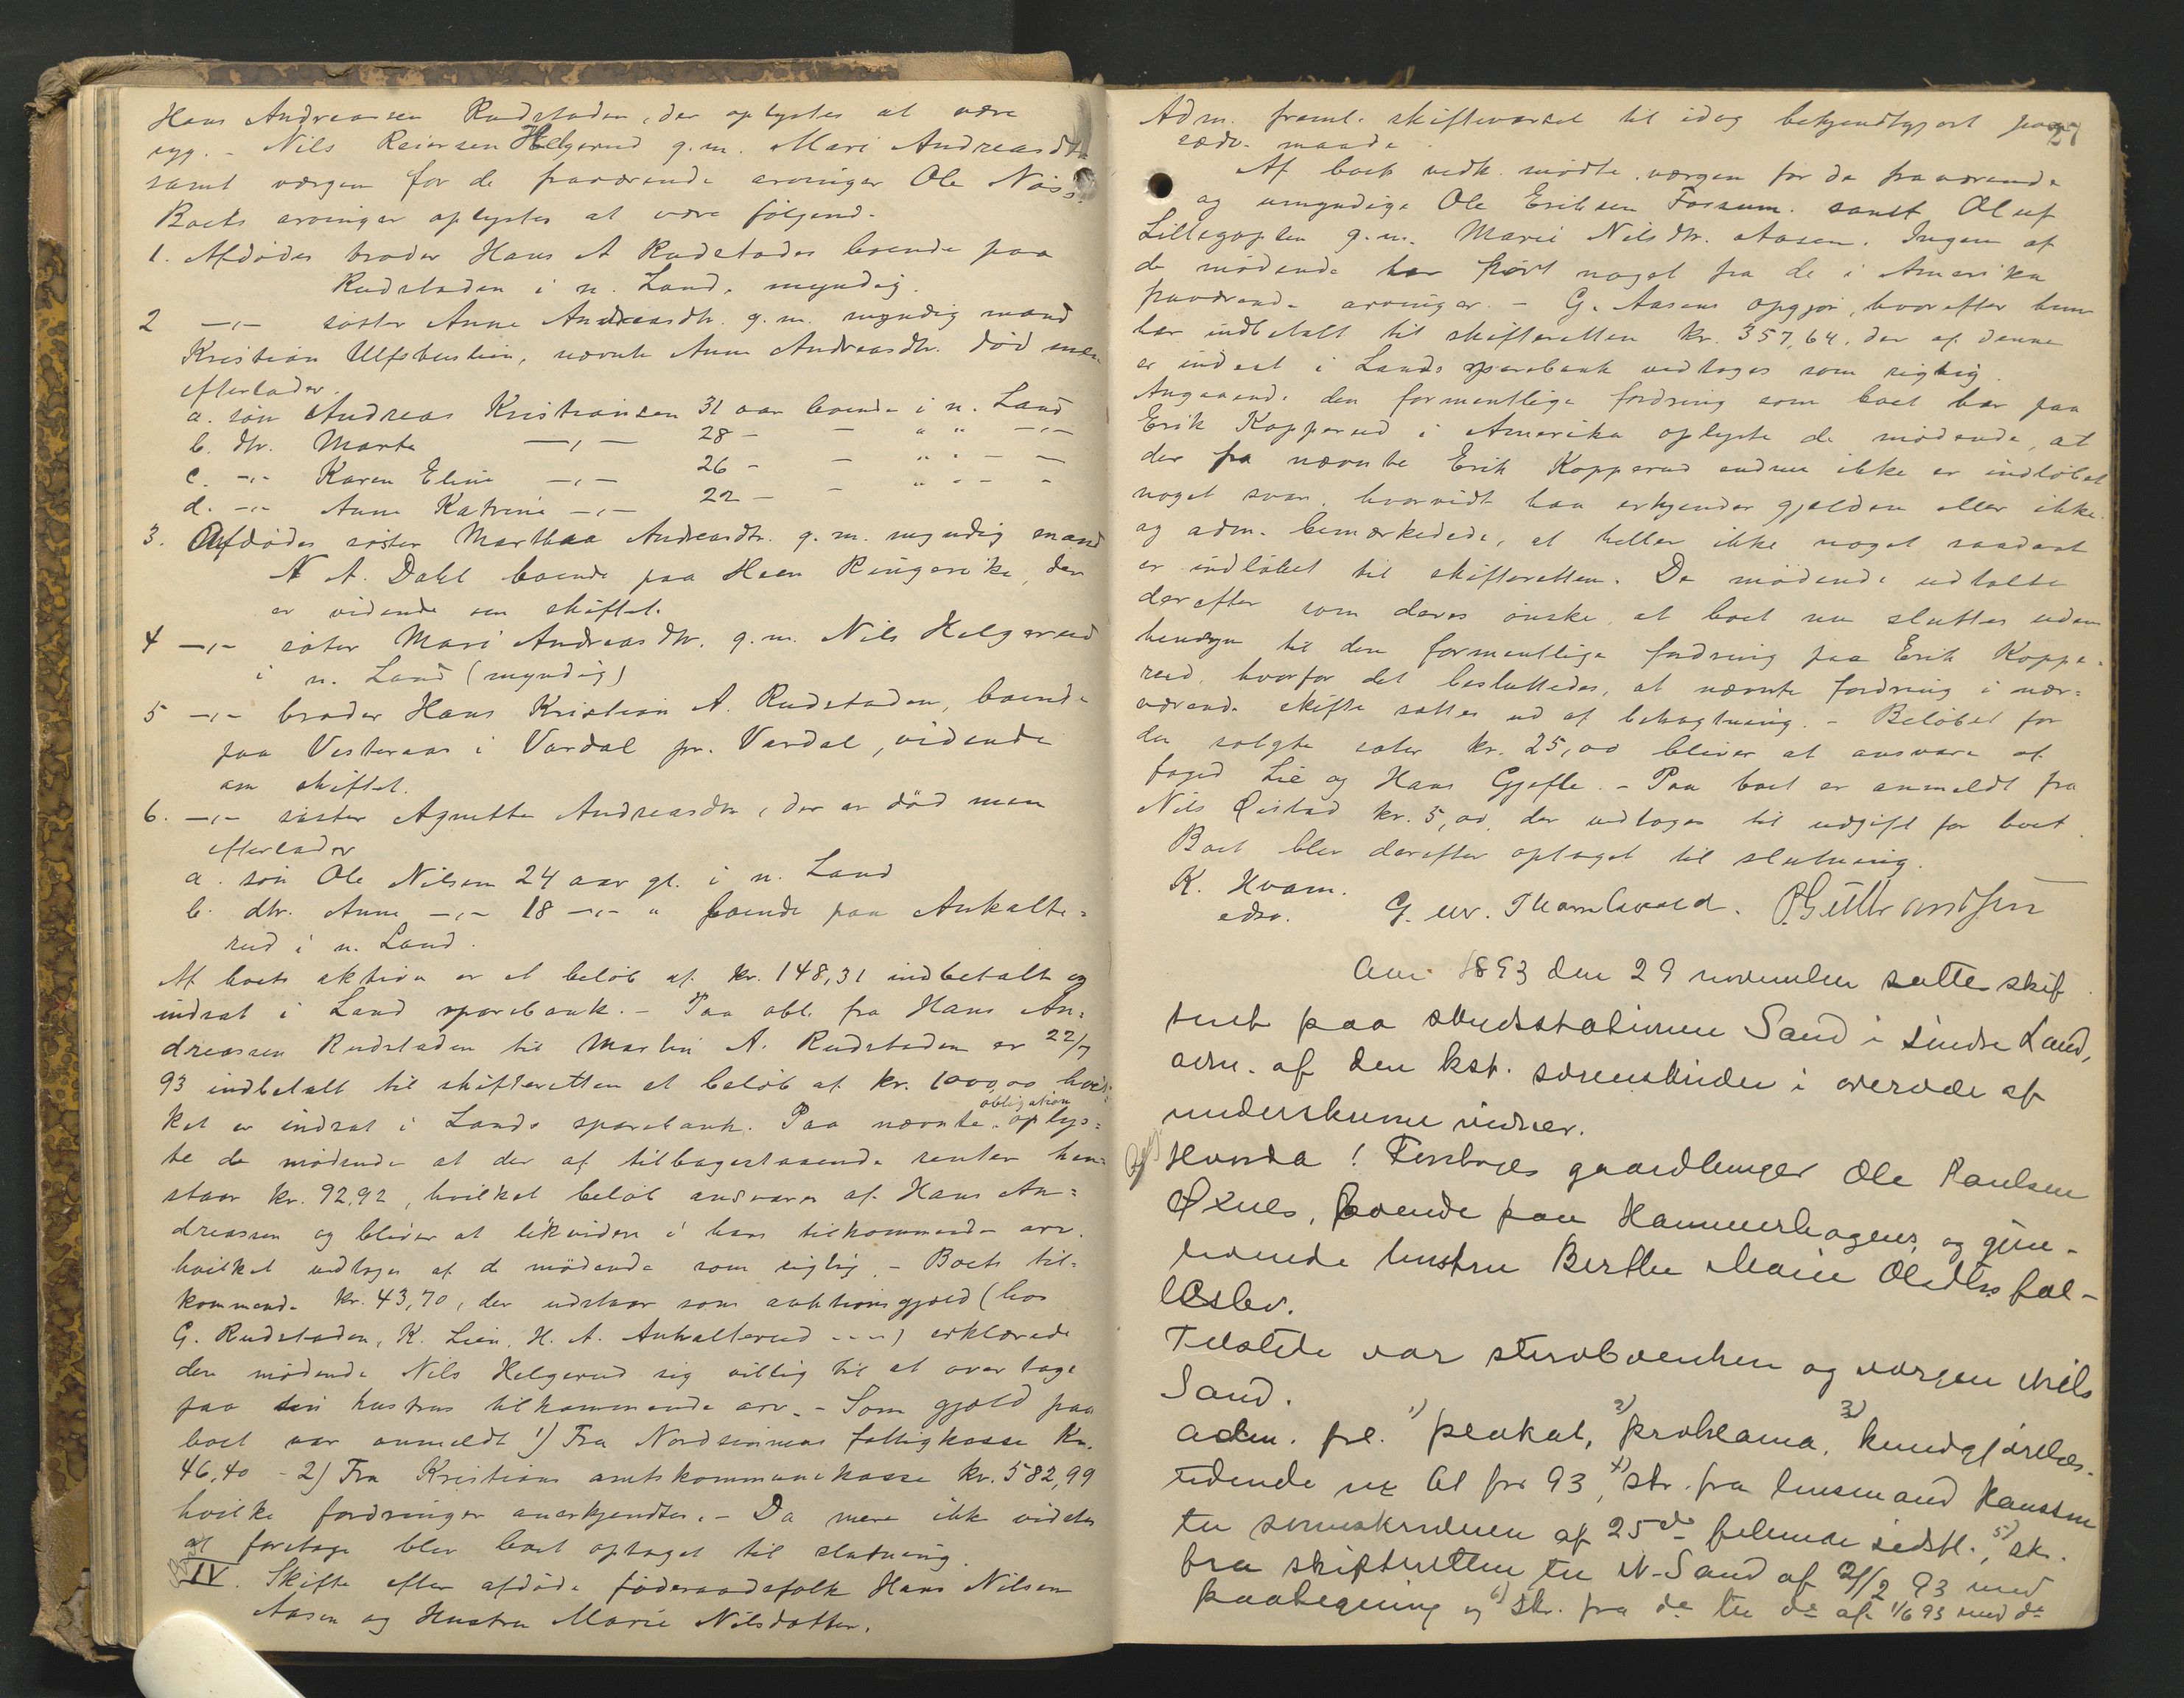 Hans Andreassen Rudstaden, der oplystes at være
syg. - Nils Reiersen Helgerud g.m. Mari Andreasdtr
samt værgen for de fraværende arvinger Ole Nøss.
Boets arvinger oplystes at være følgende.
1. Afdødes broder Hans A Rudstaden boende paa
Rudstaden i n. Land, myndig.
2 -"- søster Anne Andreasdtr. g.m. myndig mand
Kristian Ulfsbustin, nævnte Anne Andreasdtr. død men
efterlader.
a. søn Andreas Kristiansen 31 aar boende i n. Land
b. dtr. Marte -"- 28 - - " " -"-
c. -"- Karen Eline -"- 26 - - " " - -
d. -"- Anne Katrine -"- 22 - - " " - -
3. Afdødes søster Marthea Andreasdtr. g.m. myndig mand
N A. Dahl boende paa Heen Ringerike, der
er vidende om skiftet.
4 -"- søster Mari Andreasdtr. g.m. Nils Helgerud
i n. Land (myndig)
5 -"- broder Hans Kristian A. Rudstaden, boende
paa Vesteraas i Vardal pr. Vardal, vidende
om skiftet.
6. -"- søster Agnette Andreasdtr, der er død men
efterlader
a. søn Ole Nilsen 24 aar gl. i n. Land
b. dtr. Anne -"- 18 -"- " boende paa Ankalte=
rud i n. Land.
Af boets aktiva er et beløb af kr. 148,31 indbetalt og
indsat i Land sparebank. - Paa obl. fra Hans An=
dreassen Rudstaden til Martin A. Rudstaden er 22/7
93 indbetalt til skifteretten et beløb af kr. 1000,00 hvil=
ket er indsat i Lands sparebank. Paa nævnte obligation oplys=
te de mødende at der af tilbagestaaende renter hen=
staar kr. 92,92, hvilket beløb ansvares af Hans An=
dreassen og bliver at likvidere i hans tilkommende arv.
hvilket vedtoges af de mødende som rigtig. - Boets til=
kommende kr. 43,70, der udstaar som auktionsgjæld (hos
G. Rudstaden, K. Lien, H. A. Ankalterud ---) erklærede
den mødende Nils Helgerud sig villig til at overtage
paa sin hustrus tilkommende arv. - Som gjæld paa
boet var anmeldt 1) Fra Nordsinnens fattigkasse Kr.
46,40 - 2) Fra Kristians amtskommunekasse kr. 582,99
hvilke fordringer anerkjendtes. - Da mere ikke vides
at foretage blev boet optaget til slutning.
IV. Skifte efter afdøde føderaadsfolk Hans Nilsen
Aasen og Hustru Marie Nilsdatter.
27
Adm. freml. skiftevarsel til idag bekjendtgjort paa
sædv. maade.
Af boets vedk. mødte værgen for de fraværende
og umyndige Ole Eriksen Fossum. samt Oluf
Lillegoplen g.m. Marie Nilsdtr. Aasen. Ingen af
de mødende har hørt noget fra de i Amerika
fraværende arvinger. - G. Aasens opgjør, hvorefter han
har indbetalt til skifteretten kr. 357,64, der af denne
er indsat i Lands sparebank vedtoges som rigtig.
Angaaende den formentlige fordring som boet har paa
Erik Kopperud i Amerika oplyste de mødende, at
der fra nævnte Erik Kopperud endnu ikke er indløbet
noget svar, hvorvidt han erkjender gjælden eller ikke
og adm. bemærkedede, at heller ikke noget saadant
er indløbet til skifteretten. De mødende udtalte
derefter som deres ønske, at boet nu sluttes uden
hensyn til den formentlige fordring paa Erik Koppe=
rud, hvorfor det besluttedes, at nævnte fordring i nær=
værende skifte sættes ud af betragtning. - Beløbet for
den solgte sæter kr. 25,00 bliver at ansvare af
foged Lie og Hans Gjefle. - Paa boet er anmeldt fra
Nils Øistad kr. 5,00, der vedtoges til udgift for boet.
Boet blev derefter optaget til slutning.
K. Hvam.
edsv. G. Thornsvold. P. Gulbrandsen
Aar 1893 den 29 november sattes skif
teret paa skydsstationen Sand i søndre Land,
adm. af den kst. sorenskriver i overvær af
underskrevne vidner.
Hvorda! Foretoges gaardbruger Ole Paulsen
Øxnes, boende paa Hammerhagens, og gjen-
levende hustru Berthe Marie Olsdtrs fæl-
lesbo.
Tilstede var stervboenken og værgen Nils
Sand.
adm. frl. 1) plakat, 2) proklama, 3) kundgjørelses-
tidende nr 61 for 93, 4) skr. fra lensmand Hanssen
til sorenskriveren af 25de februar sidstl., 5) skr.
fra skifteretten til N. Sand af 21/2 93 med
paategning og 6) skr. fra do til do af 1/6 93 med do